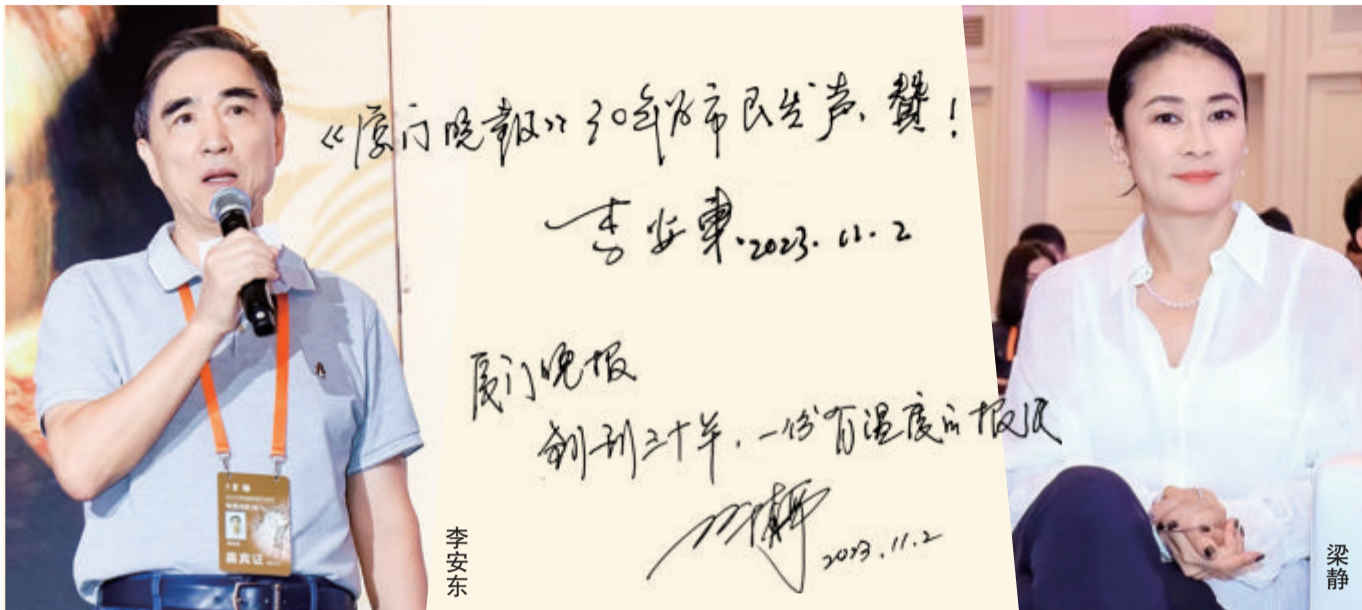 《厦门晚报》30年为市民发声,赞!
李安东.2023.11.2
厦门晚报
创刊三十年,一份有温度的报纸
梁静
2023.11.2
李安东
嘉宾证
梁静